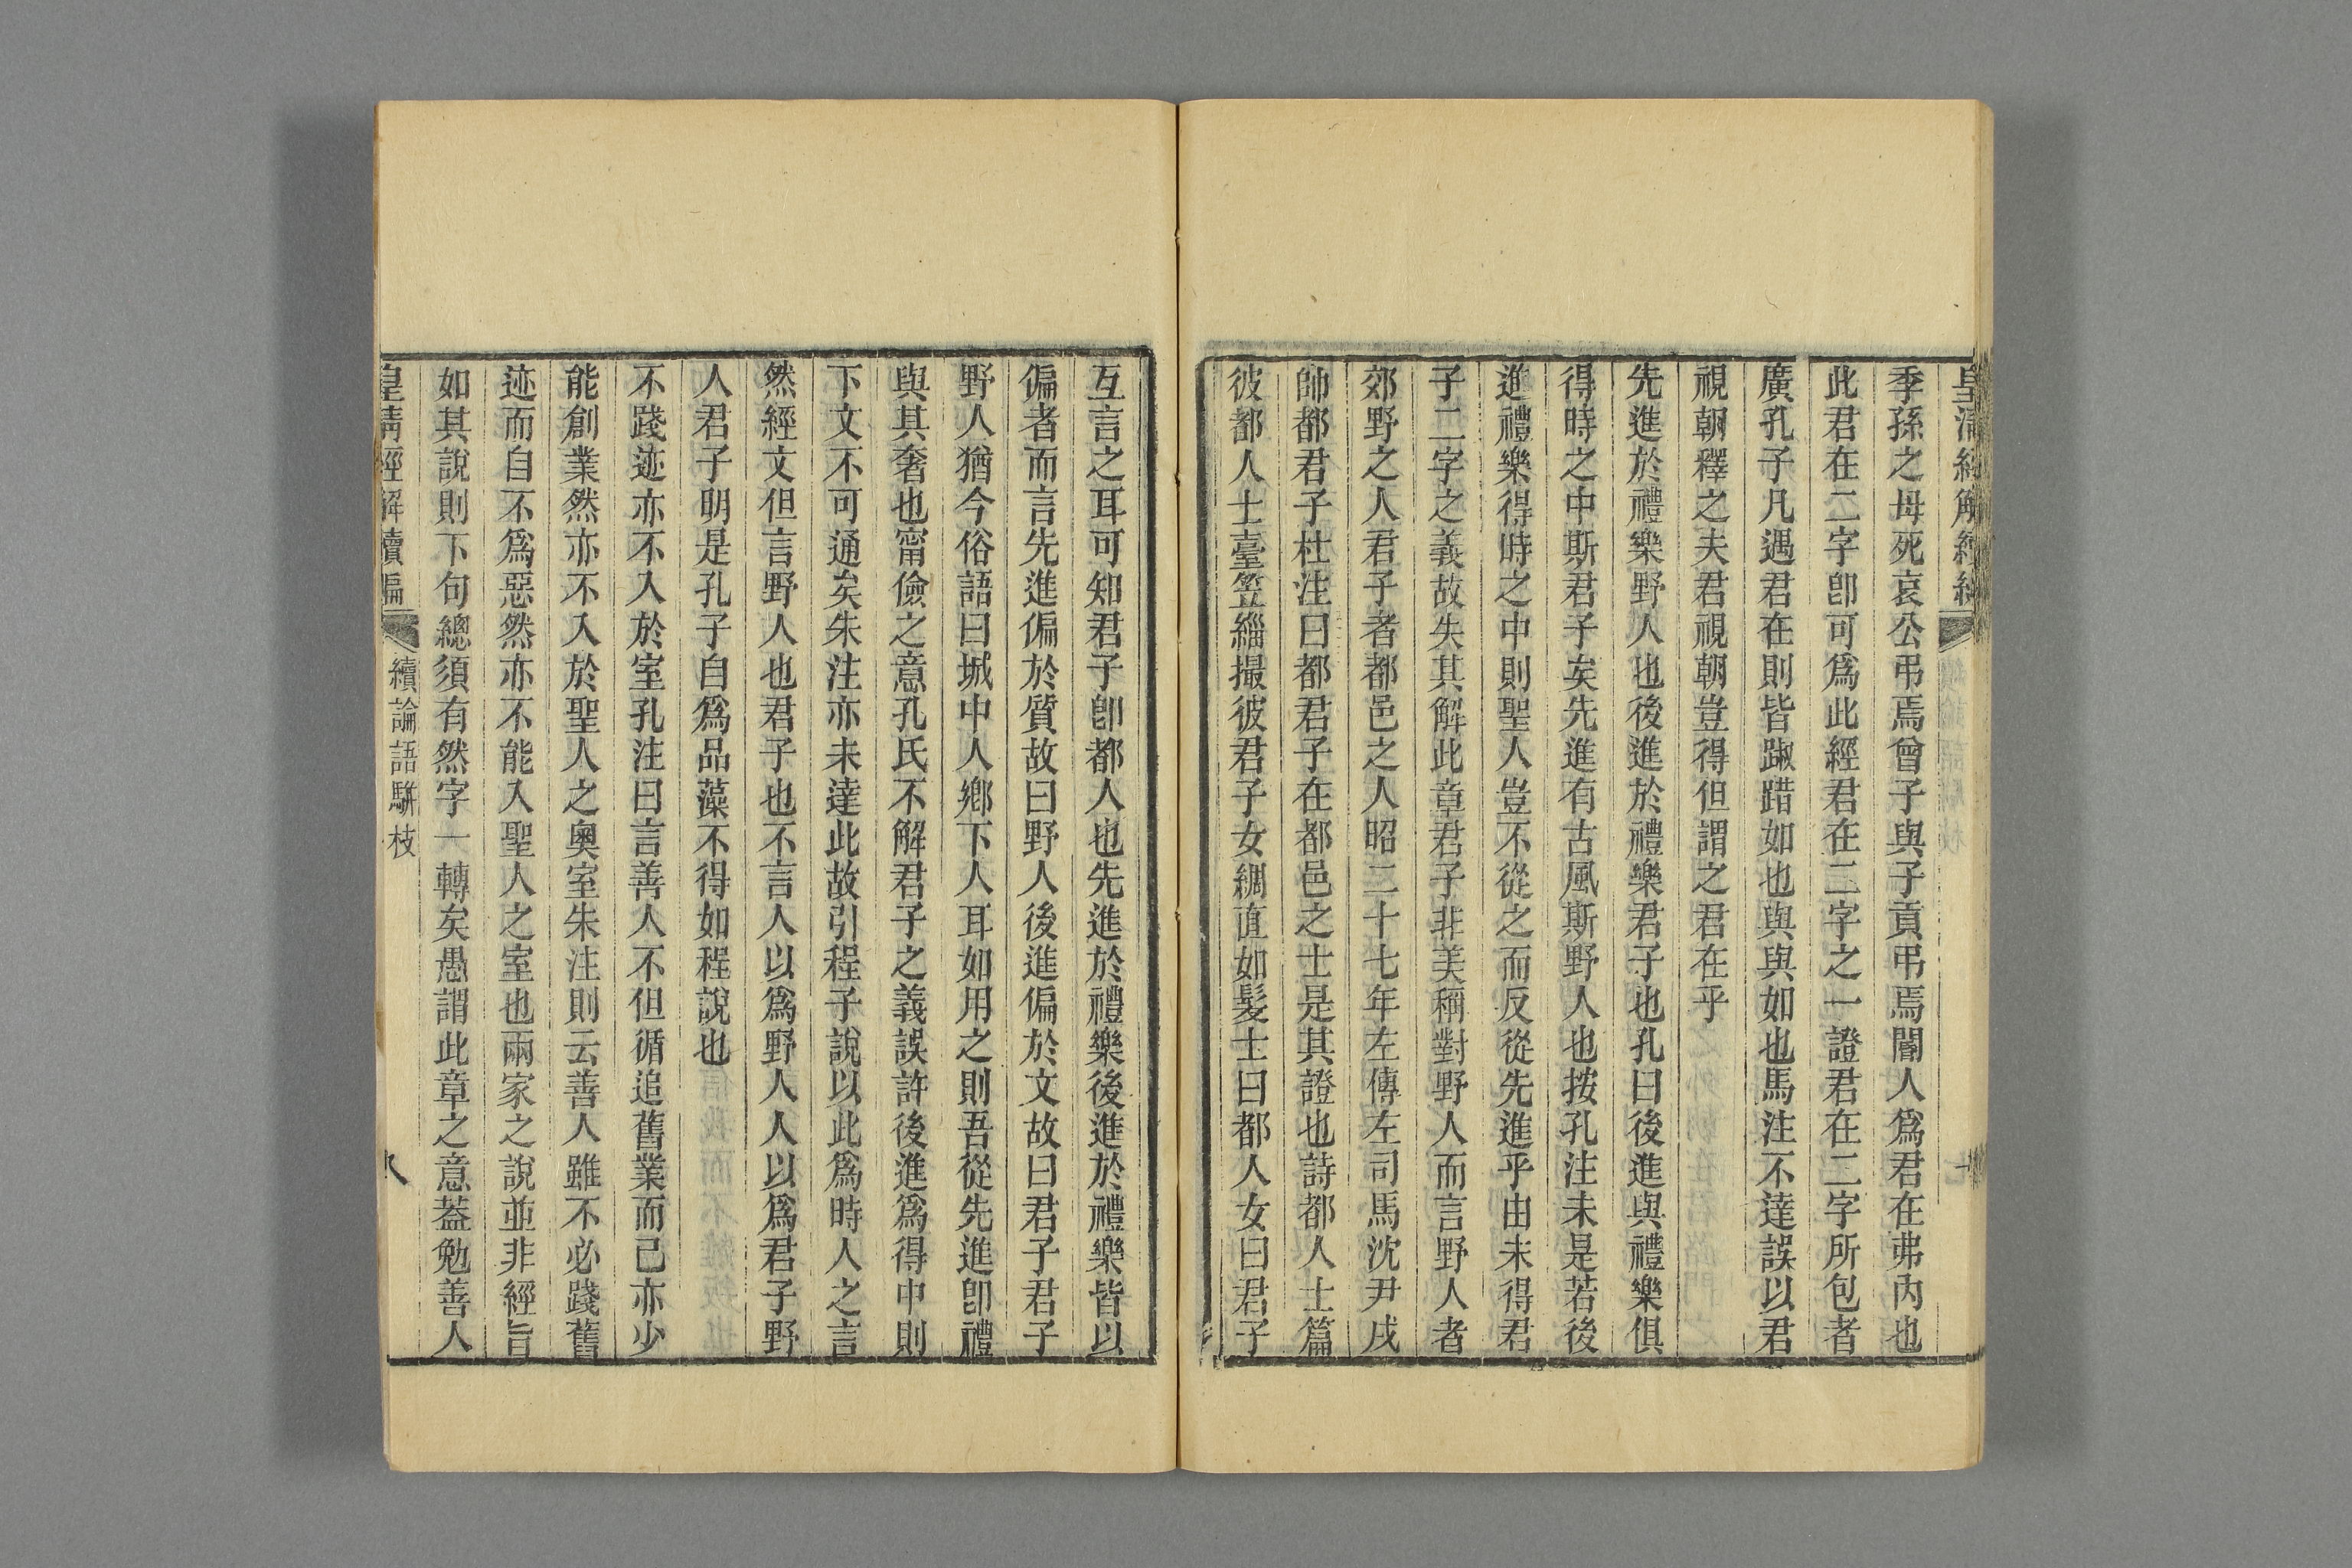 皇清經解續編
季孫之母死哀公弔焉曾子與子貢弔焉閽人爲君在弗內也
此君在二字卽可爲此經君在二字之一證君在二字所包者
廣孔子凡遇君在則皆踧踖如也與與如也馬注不達誤以君
視朝釋之夫君視朝豈得但謂之君在乎
先進於禮樂野人也後進於禮樂君子也孔曰後進與禮樂俱
得時之中斯君子矣先進有古風斯野人也按孔注未是若後
進禮樂得時之中則聖人豈不從之而反從先進乎由未得君
子二字之義故失其解此章君子非美稱對野人而言野人者
郊野之人君子者都邑之人昭二十七年左傳左司馬沈尹戌
帥都君子杜注曰都君子在都邑之士是其證也詩都人士篇
彼都人士臺笠緇撮彼君子女綢直如髮士曰都人女曰君子
互言之耳可知君子卽都人也先進於禮樂後進於禮樂皆以
偏者而言先進偏於質故曰野人後進偏於文故曰君子君子
野人猶今俗語曰城中人鄉下人耳如用之則吾從先進卽禮
與其奢也甯儉之意孔氏不解君子之義誤許後進爲得中則
下文不可通矣朱注亦未達此故引程子說以此爲時人之言
然經文但言野人也君子也不言人以爲野人人以爲君子野
人君子明是孔子自爲品藻不得如程說也
不踐迹亦不入於室孔注曰言善人不但循追舊業而已亦少
能創業然亦不入於聖人之奧室朱注則云善人雖不必踐舊
迹而自不爲惡然亦不能入聖人之室也兩家之說並非經旨
如其說則下句總須有然字一轉矣愚謂此章之意葢勉善人
皇淸經解續編 續論語駢枝 八